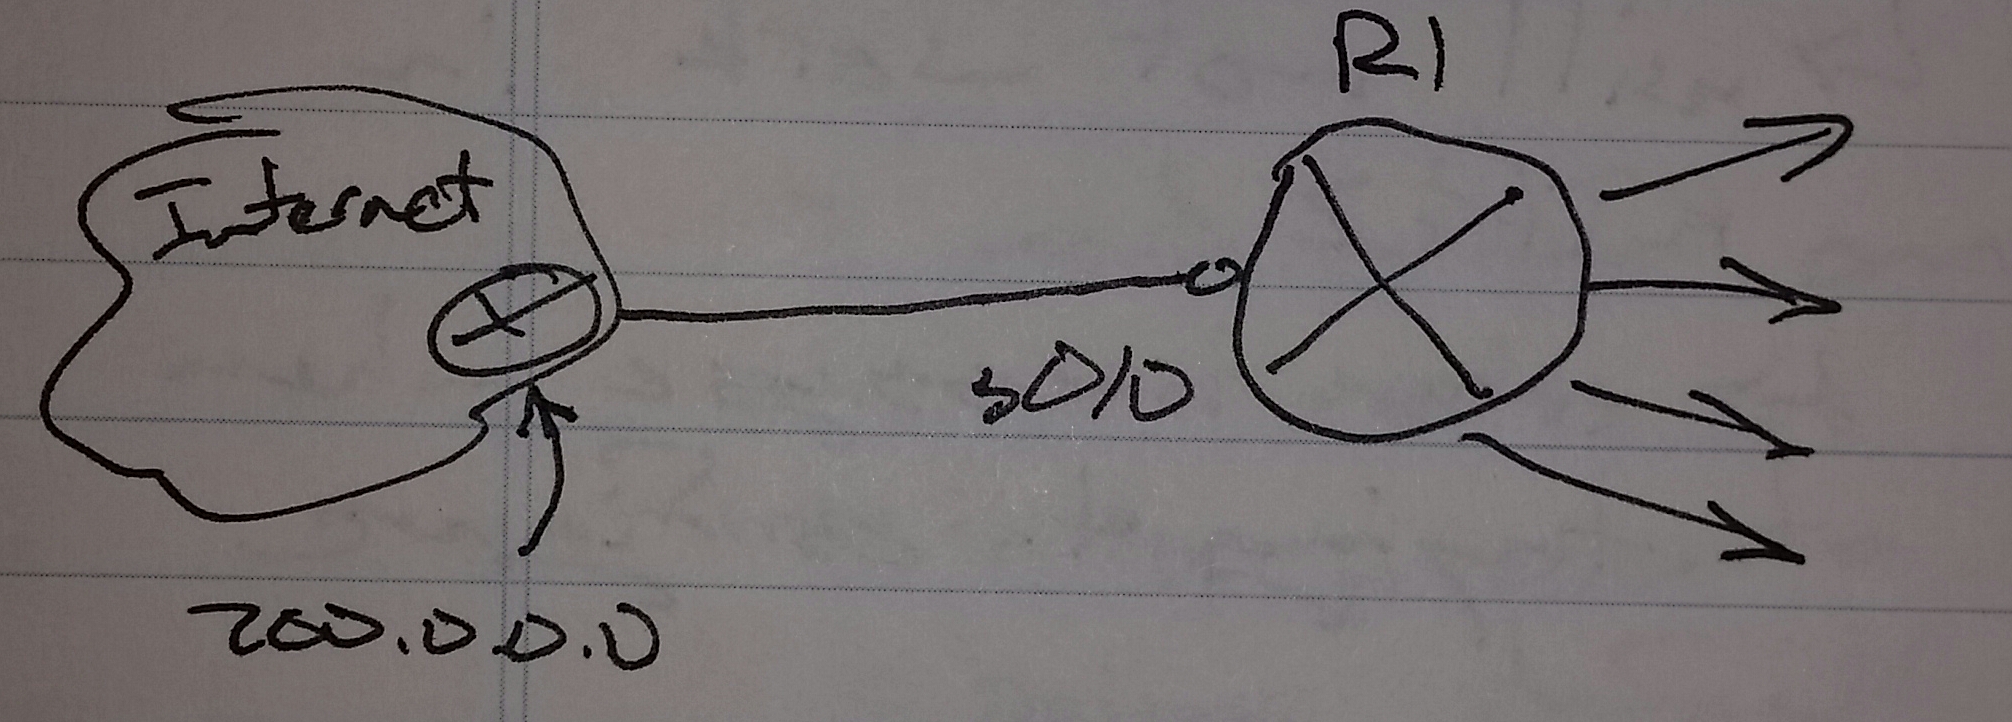 R1
Internet
s0/0
200.0.0.0